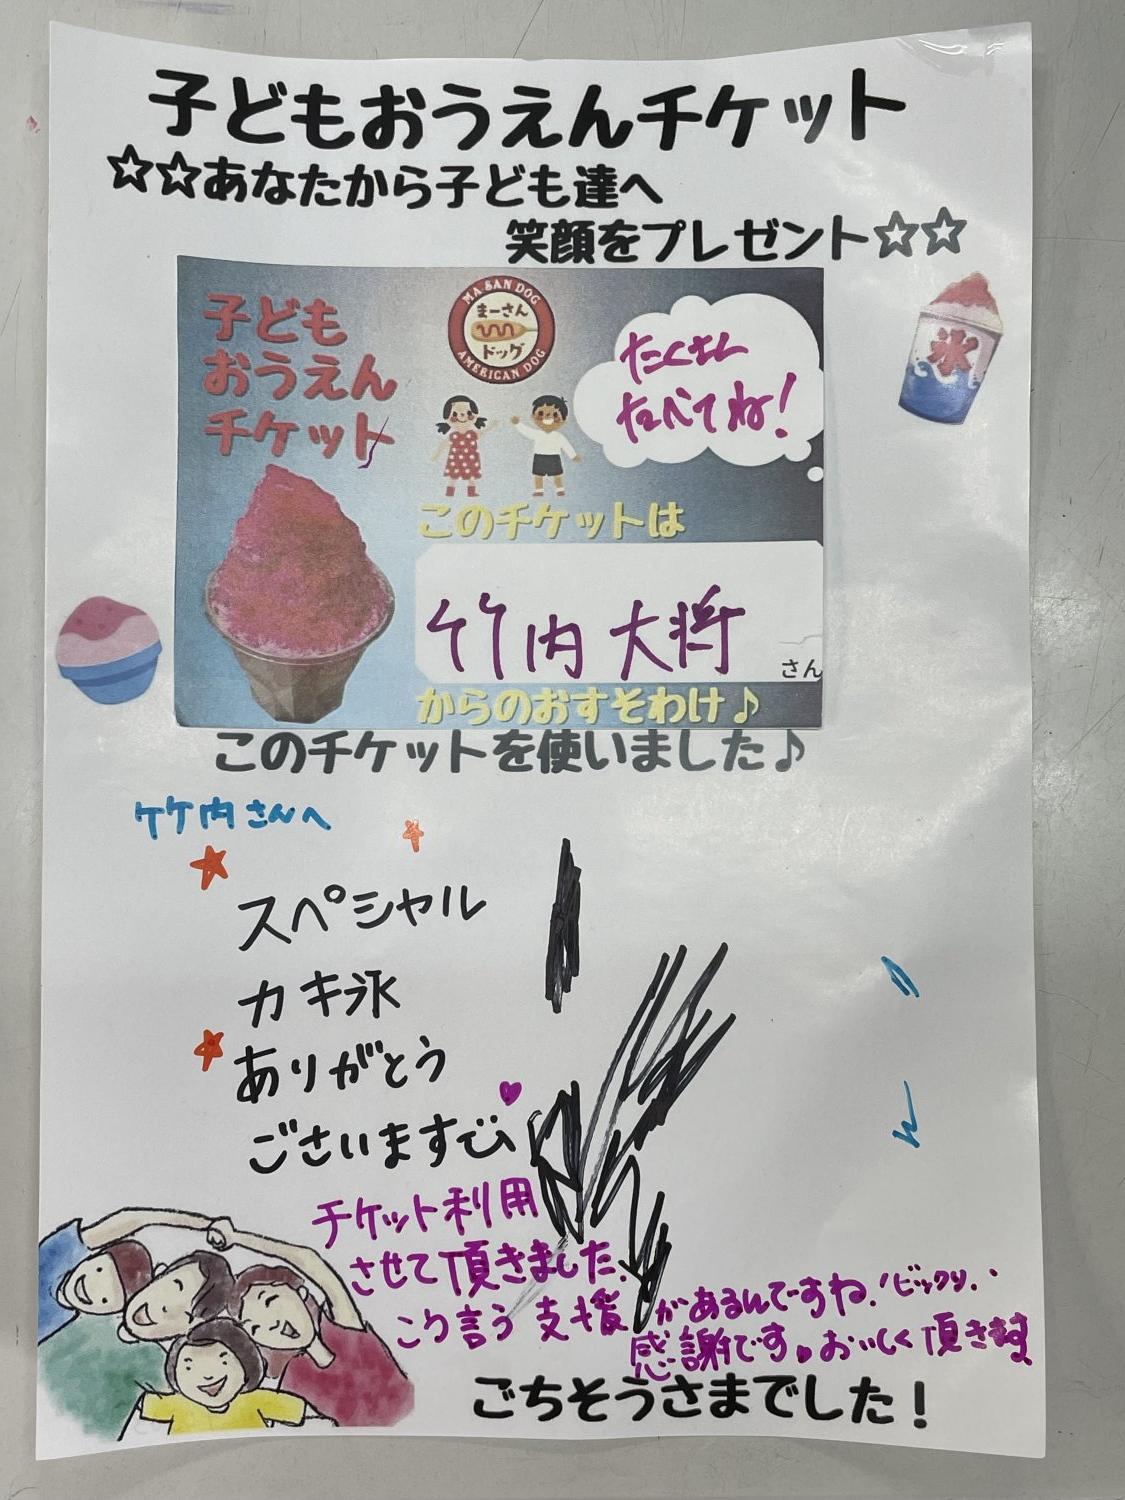 子どもおうえんチケット
☆☆あなたから子ども達へ
笑顔をプレゼント☆☆
子ども
おうえん
チケット
MA SAN DOG
まーさん
ドッグ
AMERICAN DOG
たくさん
たべてね!
氷
このチケットは
竹内 大将
さん
からのおすそわけ♪
このチケットを使いました♪
竹内さんへ
スペシャル
カキ氷
ありがとう
ございます
チケット利用
させて頂きました.
こう言う 支援 があるんですね.!ビックリ.
感謝です。おいしく頂きます
ごちそうさまでした!